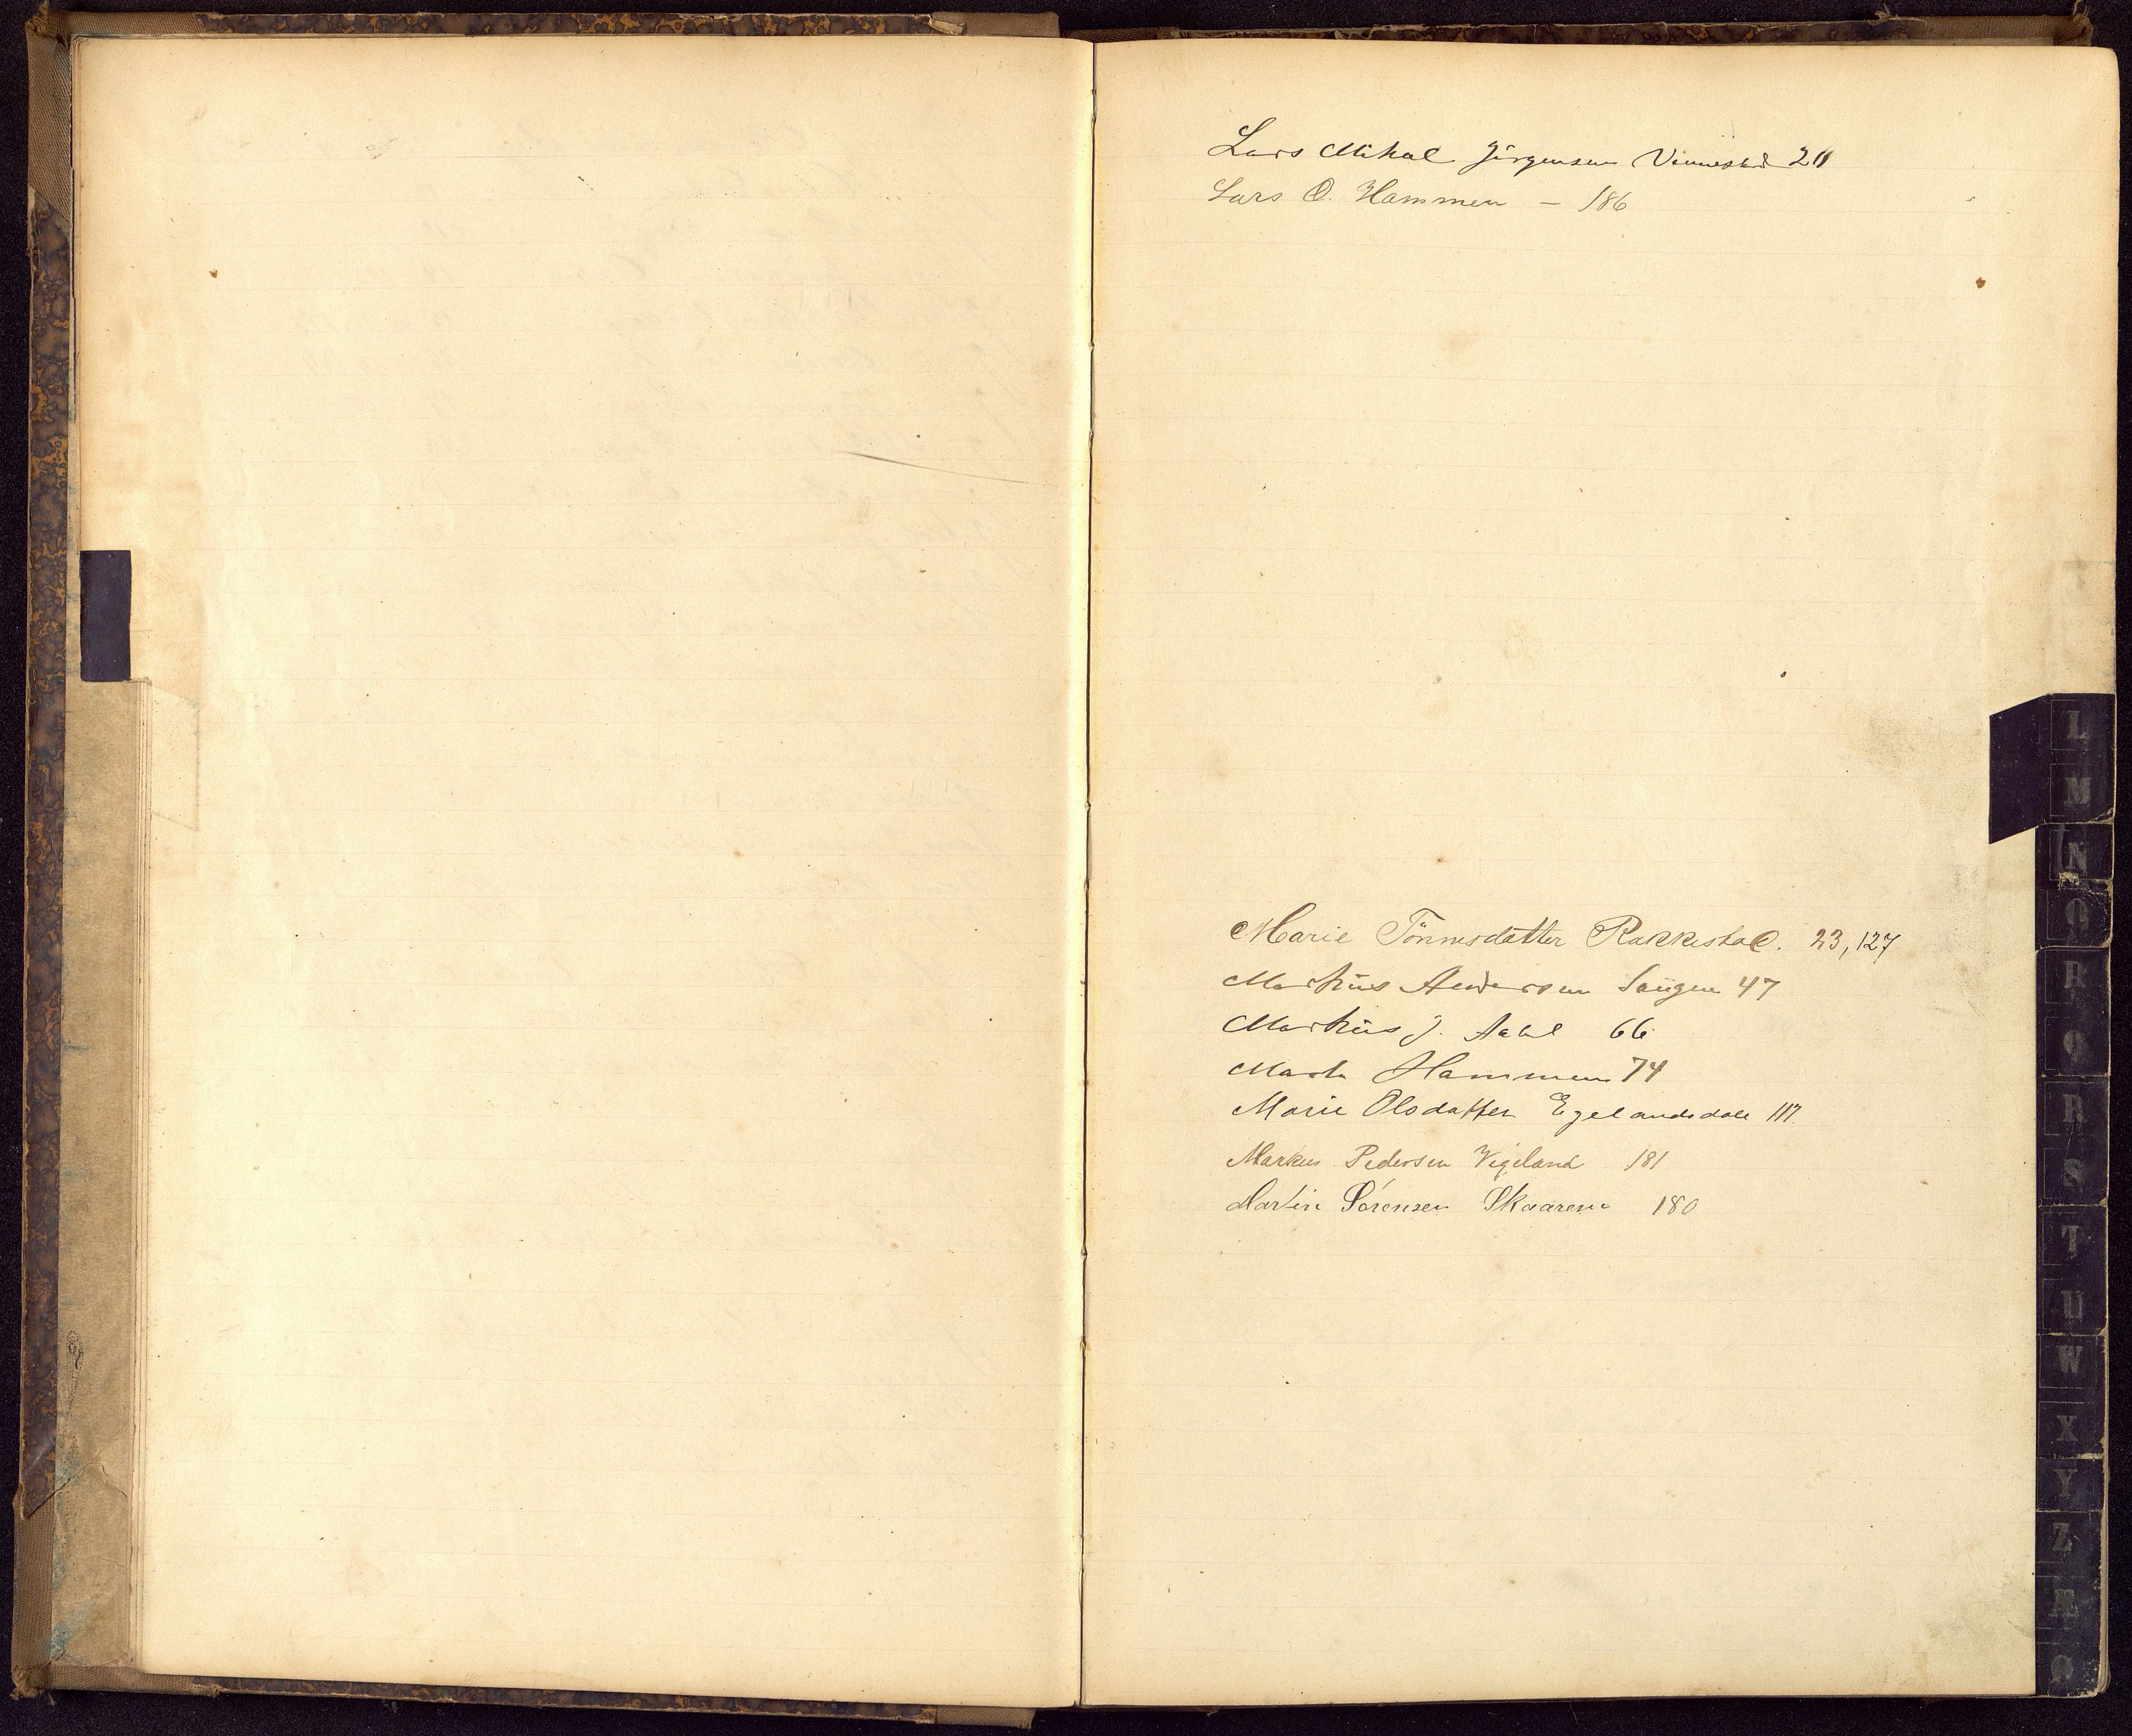 Lars Mikal Jørgensen Vinnestad 211
Lars O. Hammen – 186
Marie Tönnesdatter Rakkestad. 23, 127
Martius Andersen Saugen 47
Martius J. 66
Hammen 74
Marie Olsdatter Egelandsdale 117.
Markus Pedersen Vigeland 181
Martin Sørensen Skaaren 180
L
M
N
O
P
Q
R
S
T
U
W
X
Y
Z
Æ
Ø